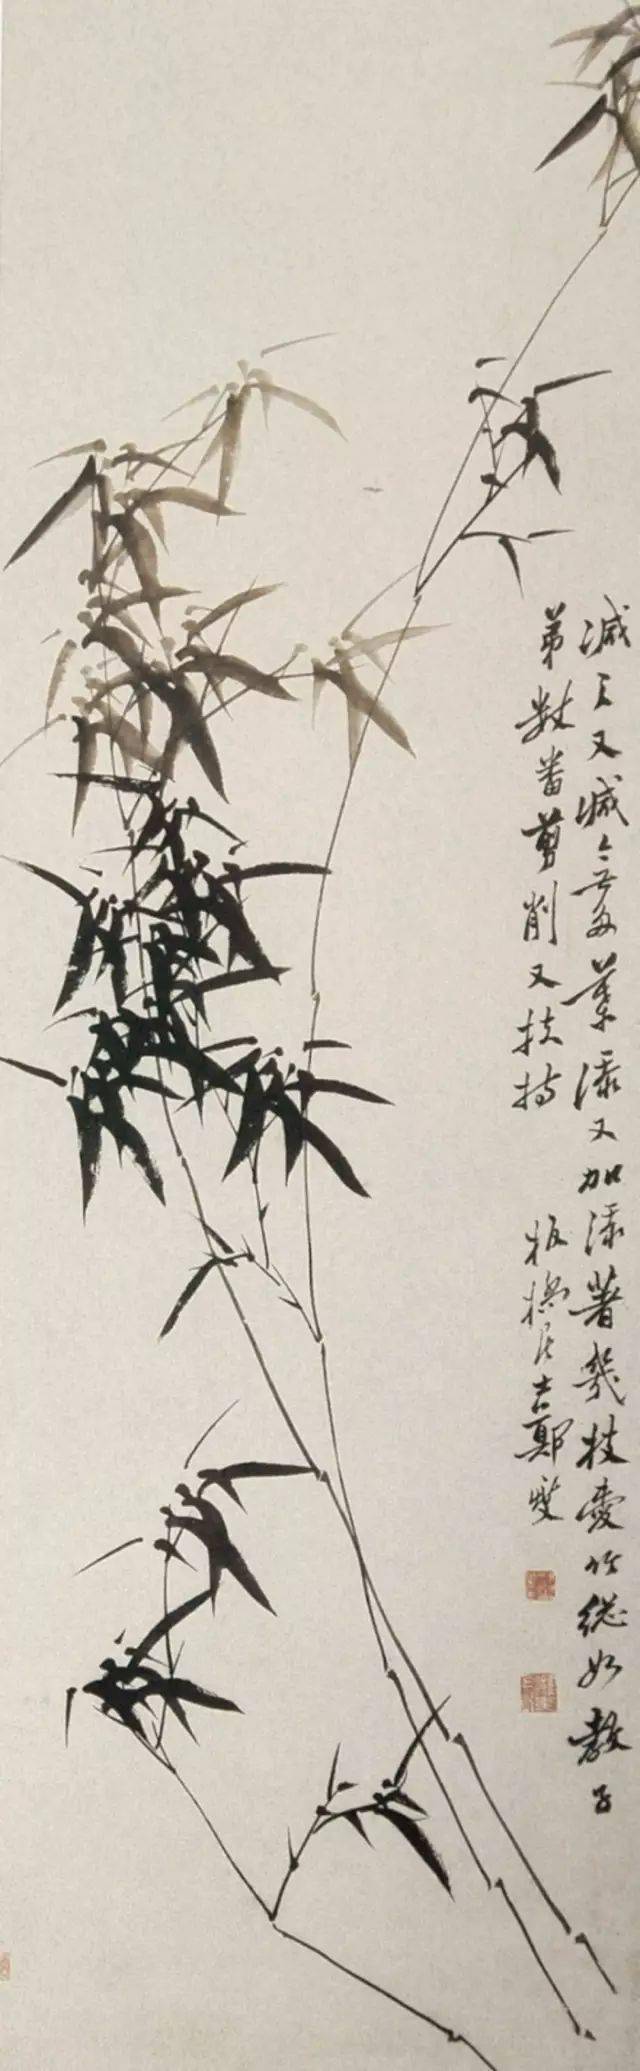 減之又減無多葉添又加添著幾枝愛竹總如教子
弟數番剪削又扶持　板橋居士鄭燮